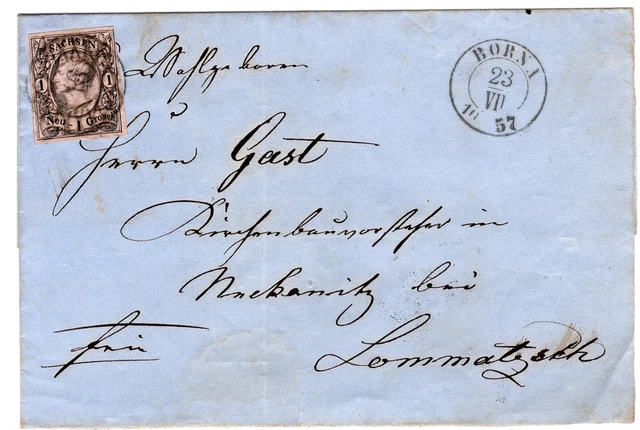 SACHSEN
1 1
Neu-1 Grosch
BORNA
23
VII
10 57
Wohlgeboren
Herrn Gast
Kirchenbauvorsteher in
Neckanitz bei
frei
Lommatzsch